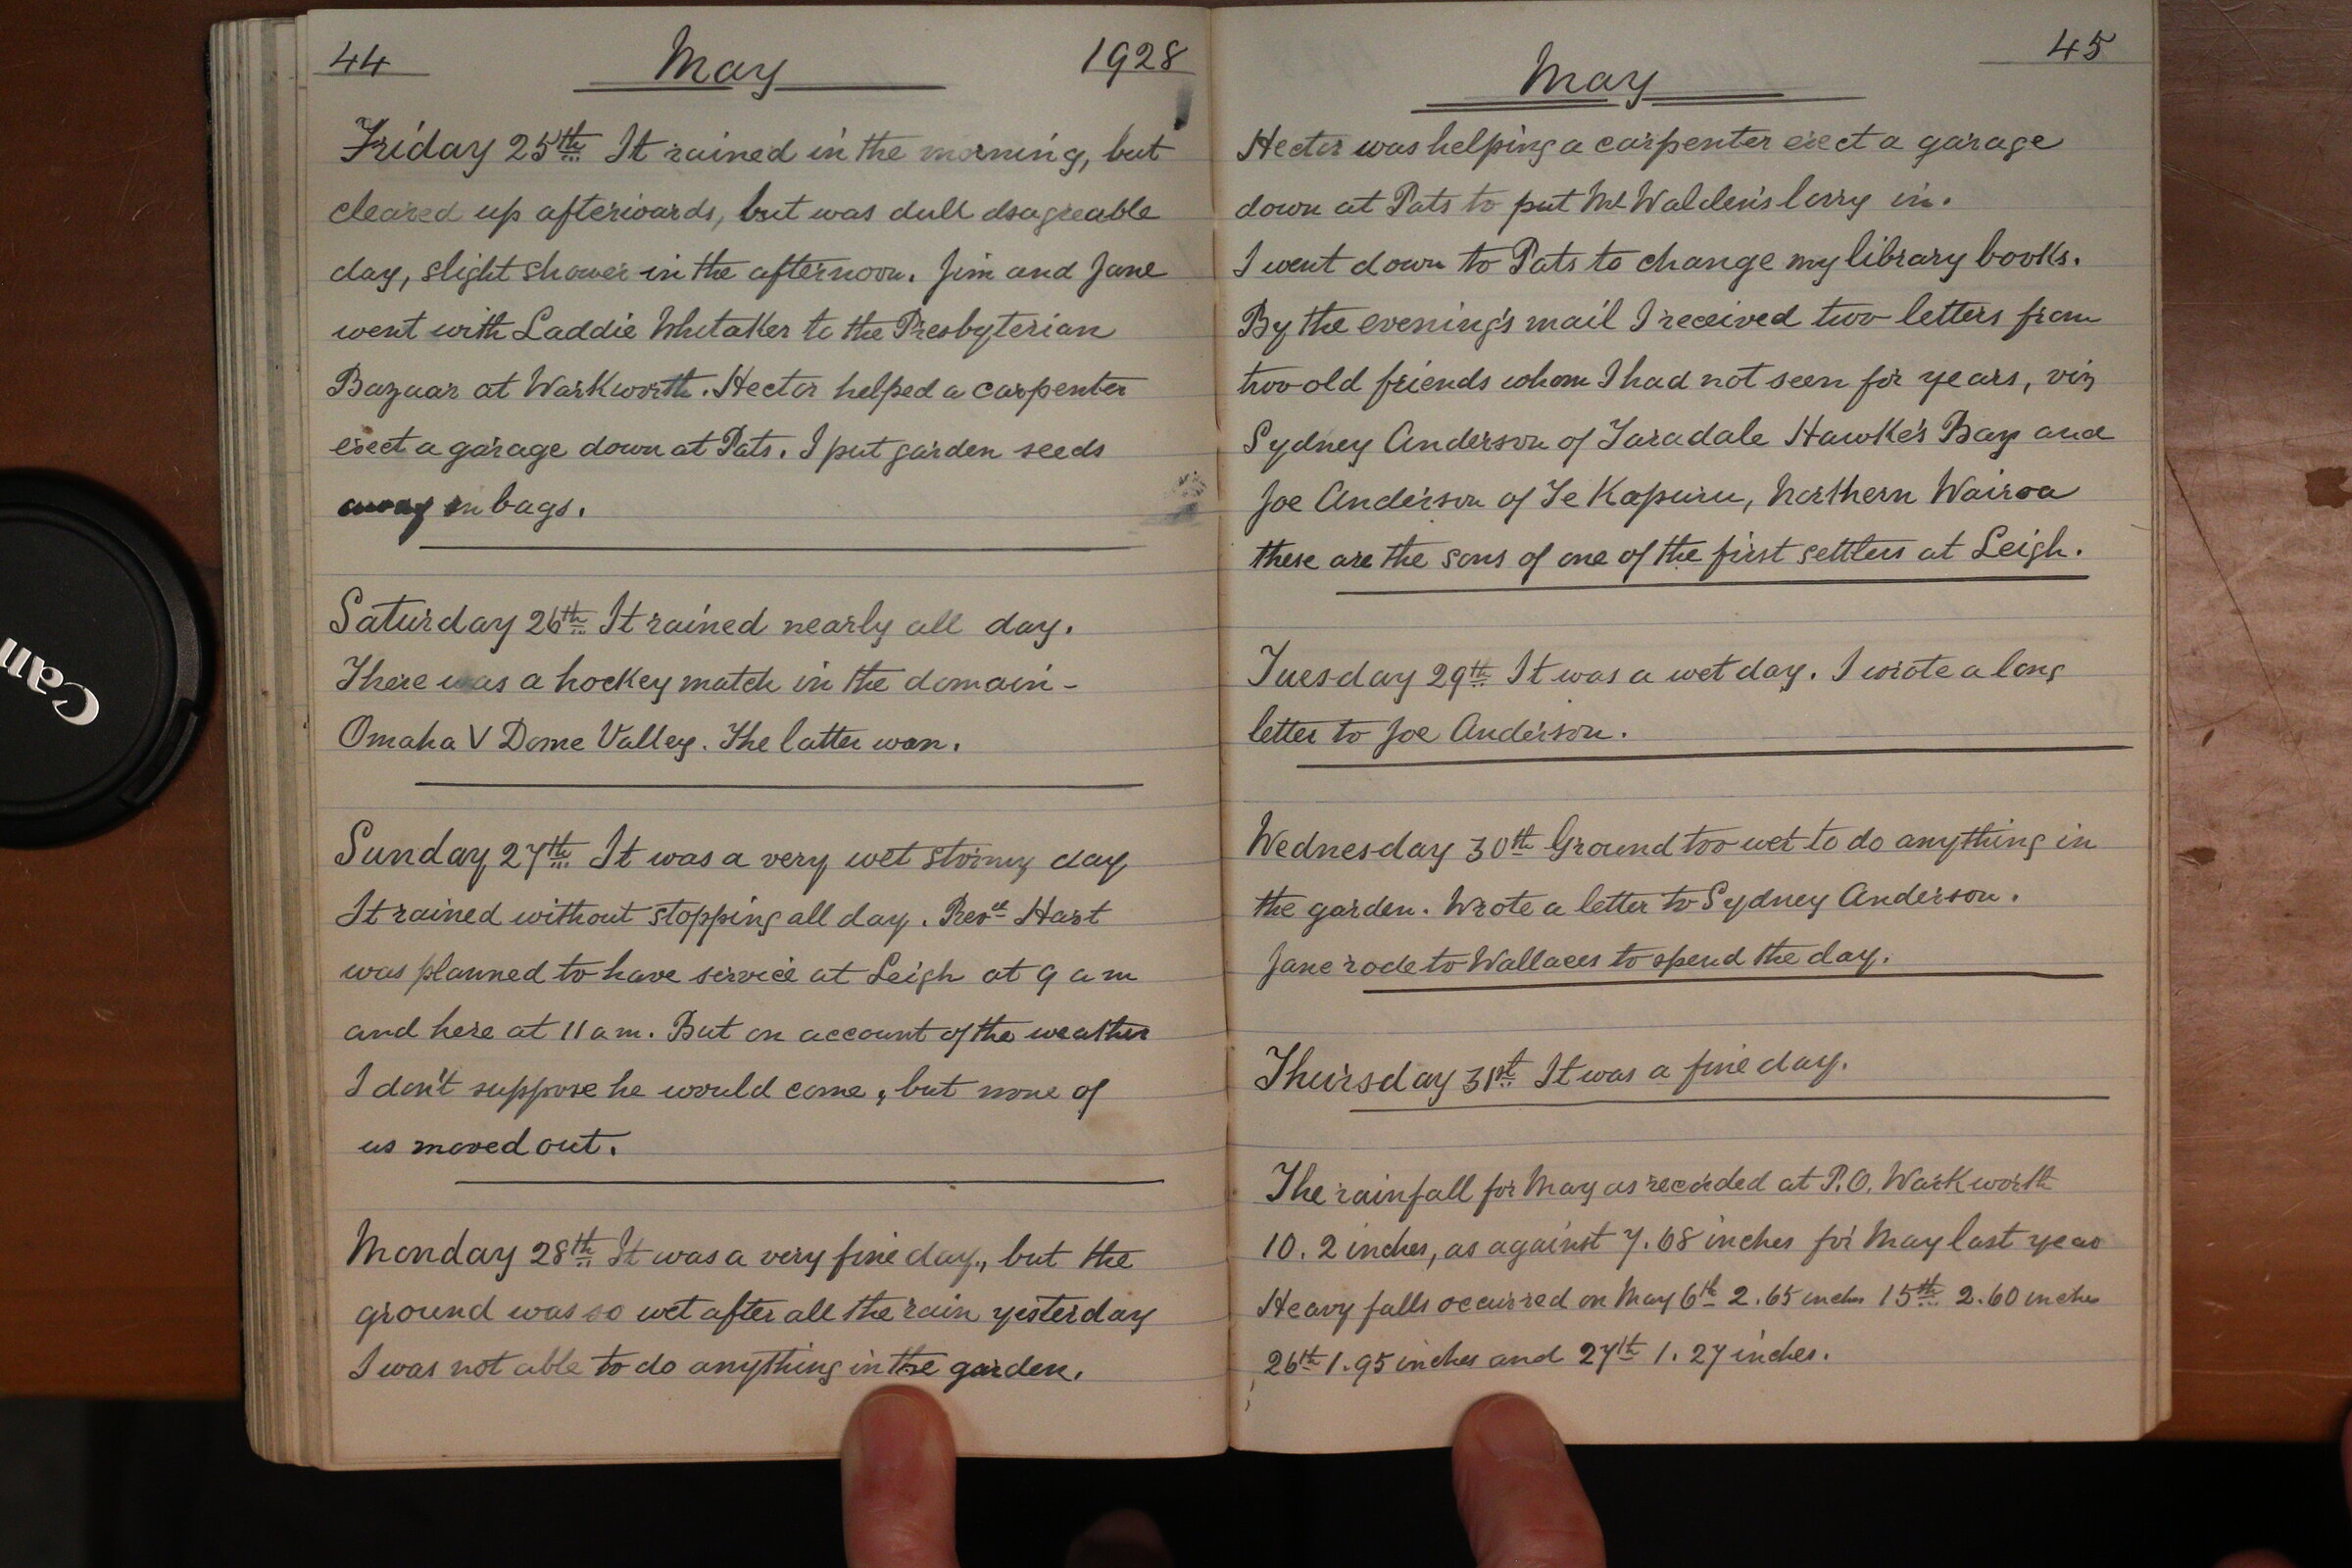 44 May 1928
Friday 25th It rained in the morning, but
cleared up afterwards, but was dull dsagreeable
day, slight shower in the afternoon. Jim and Jane
went with Laddie Whitaker to the Presbyterian
Bazuar at Warkworth. Hector helped a carpenter
erect a garage down at Pats. I put garden seeds
away in bags.
Saturday 26th It rained nearly all day.
There was a hockey match in the domain -
Omaha V Dome Valley. The latter won.
Sunday 27th It was a very wet stormy day
It rained without stopping all day. Revd Hart
was planned to have service at Leigh at 9 am
and here at 11 am. But on account of the weather
I don't suppose he would come, but none of
us moved out.
Monday 28th It was a very fine day, but the
ground was so wet after all the rain yesterday
I was not able to do anything in the garden.
May 45
Hector was helping a carpenter erect a garage
down at Pats to put Mr Walden's lorry in.
I went down to Pats to change my library books.
By the evening's mail I received two letters from
two old friends whom I had not seen for years, viz
Sydney Anderson of Taradale Hawke's Bay and
Joe Anderson of Te Kopuru, Northern Wairoa
these are the sons of one of the first settlers at Leigh.
Tuesday 29th It was a wet day. I wrote a long
letter to Joe Anderson.
Wednesday 30th Ground too wet to do anything in
the garden. Wrote a letter to Sydney Anderson.
Jane rode to Wallaces to spend the day.
Thursday 31st It was a fine day.
The rainfall for May as recorded at P.O. Warkworth
10.2 inches, as against 7.68 inches for May last year
Heavy falls occurred on May 6th 2.65 inches 15th 2.60 inches
26th 1.95 inches and 27th 1.27 inches.
Can